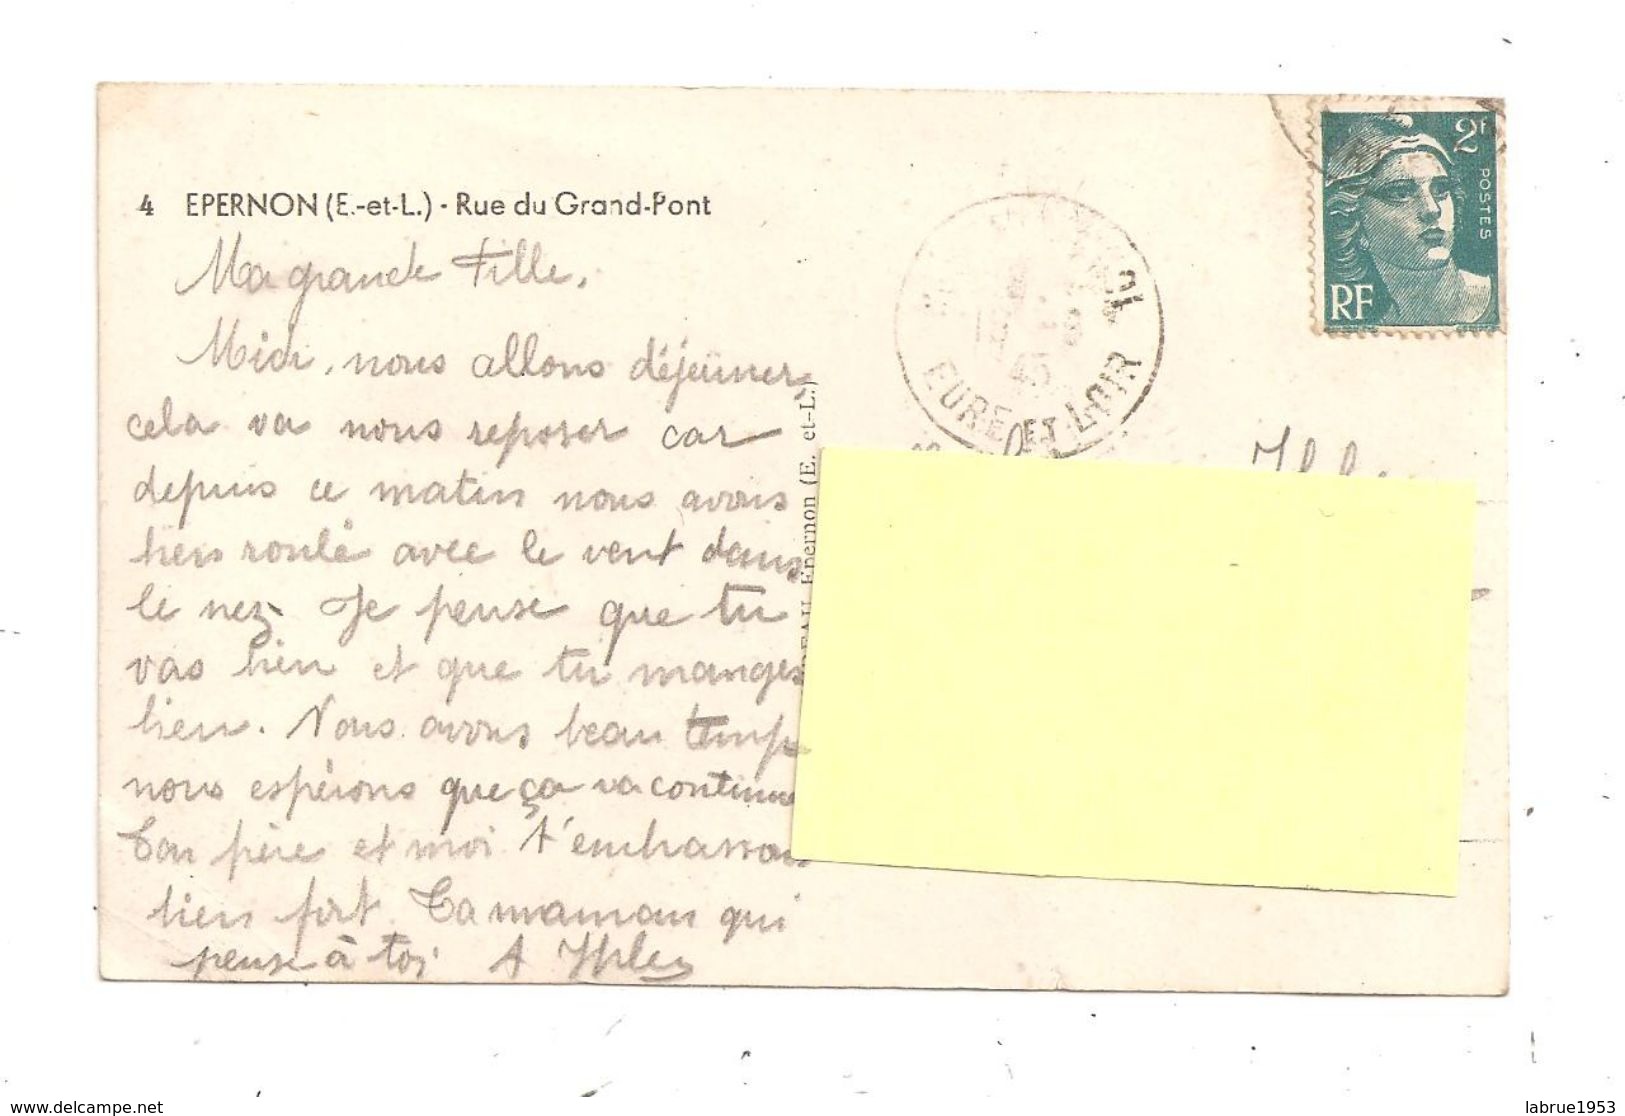 4 EPERNON (E.-et-L.) - Rue du Grand-Pont
Ma grande Fille,
Midi, nous allons déjeuner,
cela va nous reposer car
depuis ce matin nous avons
bien roulé avec le vent dans
le nez. Je pense que tu
vas bien et que tu manges
bien. Nous avons beau temps
nous espérons que ça va continuer
Ton père et moi t'embrassons
bien fort. Ta maman qui
pense à toi A
Epernon (E. et-L.)
EURE ET LOIR
45
2F
POSTES
RF
www.delcampe.net
labrue1953